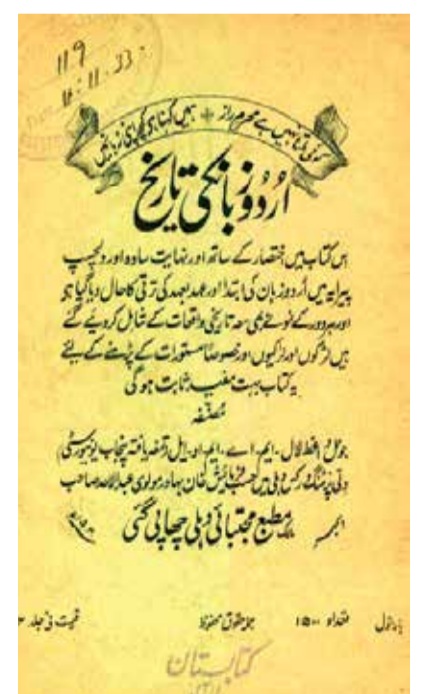 119
11.11.33
کوئی ملتا نہیں ہے محرم راز ہمیں کہنا ہے کچھ اپنی زباں میں
اُردو زبان کی تاریخ
اس کتاب میں اختصار کے ساتھ اور نہایت سادہ اور دلچسپ
پیرایہ میں اُردو زبان کی ابتدا اور عہد بعہد کی ترقی کا حال دیا گیا ہو
اور ہر دور کے نمونے بھی معہ تاریخی واقعات کے شامل کردیے گئے
ہیں لڑکوں اور لڑکیوں اور خصوصاً مستورات کے پڑھنے کے لیے
یہ کتاب بہت مفید ثابت ہوگی
مصنفہ
لال - ایم - اے - ایم - او - ایل تمغہ یافتہ پنجاب یونیورسٹی
دلی پرنٹنگ ورکس دہلی میں حسب فرمایش خان بہادر مولوی عبدالاحد صاحب
مطبع مجتبائی دہلی چھاپی گئی
بار اول تعداد ۱۵۰۰ جملہ حقوق محفوظ قیمت فی جلد
کتابستان